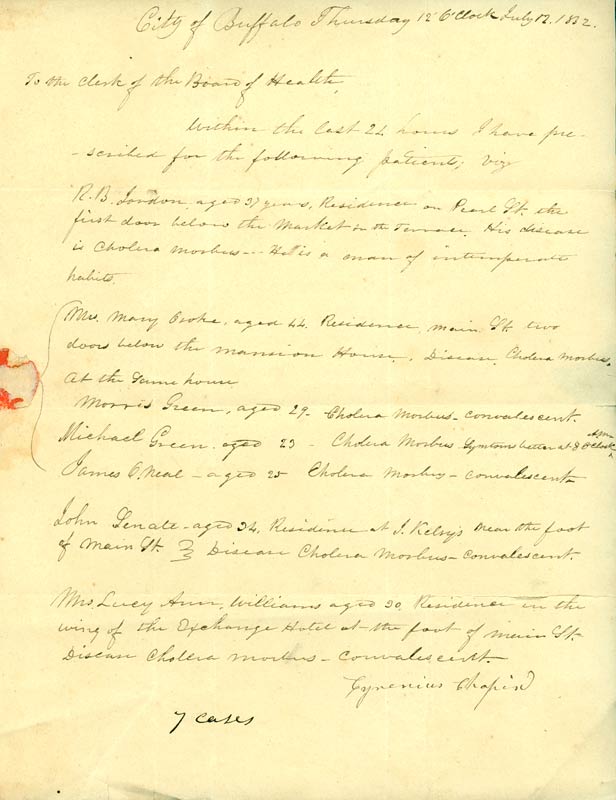 City of Buffalo Thursday 12 O'Clock July 12. 1832.
To the Clerk of the Board of Health,
Within the last 24 hours I have pre-
-scribed for the following patients; viz
R. B. London, aged 37 years, Residence on Pearl St. the
first door below the Market on the Terrace. His disease
is Cholera Morbus -- He is a man of intemperate
habits.
Mrs. Mary Croke, aged 44. Residence, main St. two
doors below the mansion House. Disease, Cholera Morbus.
At the same house
Morris Green, aged 29 - Cholera Morbus - convalescent.
Michael Green. aged 23 - Cholera Morbus Symtoms better at 8 O'Clock
James O. Neal - aged 25 Cholera Morbus - convalescent
John Senate - aged 34, Residence at J. Kelsy's near the foot
of Main St. Disease Cholera Morbus - Convalescent.
Mrs. Lucy Ann, Williams aged 30. Residence in the
wing of the Exchange Hotel at the foot of main St.
Disease Cholera morbus - Convalescent.
Cyrenius Chapin
7 cases